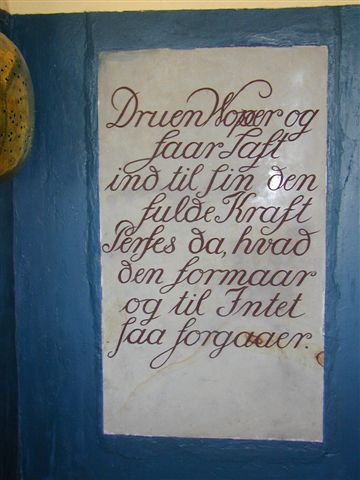 Druen Woxer og
faar Saft
ind til sin den
fulde Kraft
Perses da, hvad
den formaar
og til Intet
saa forgaaer.